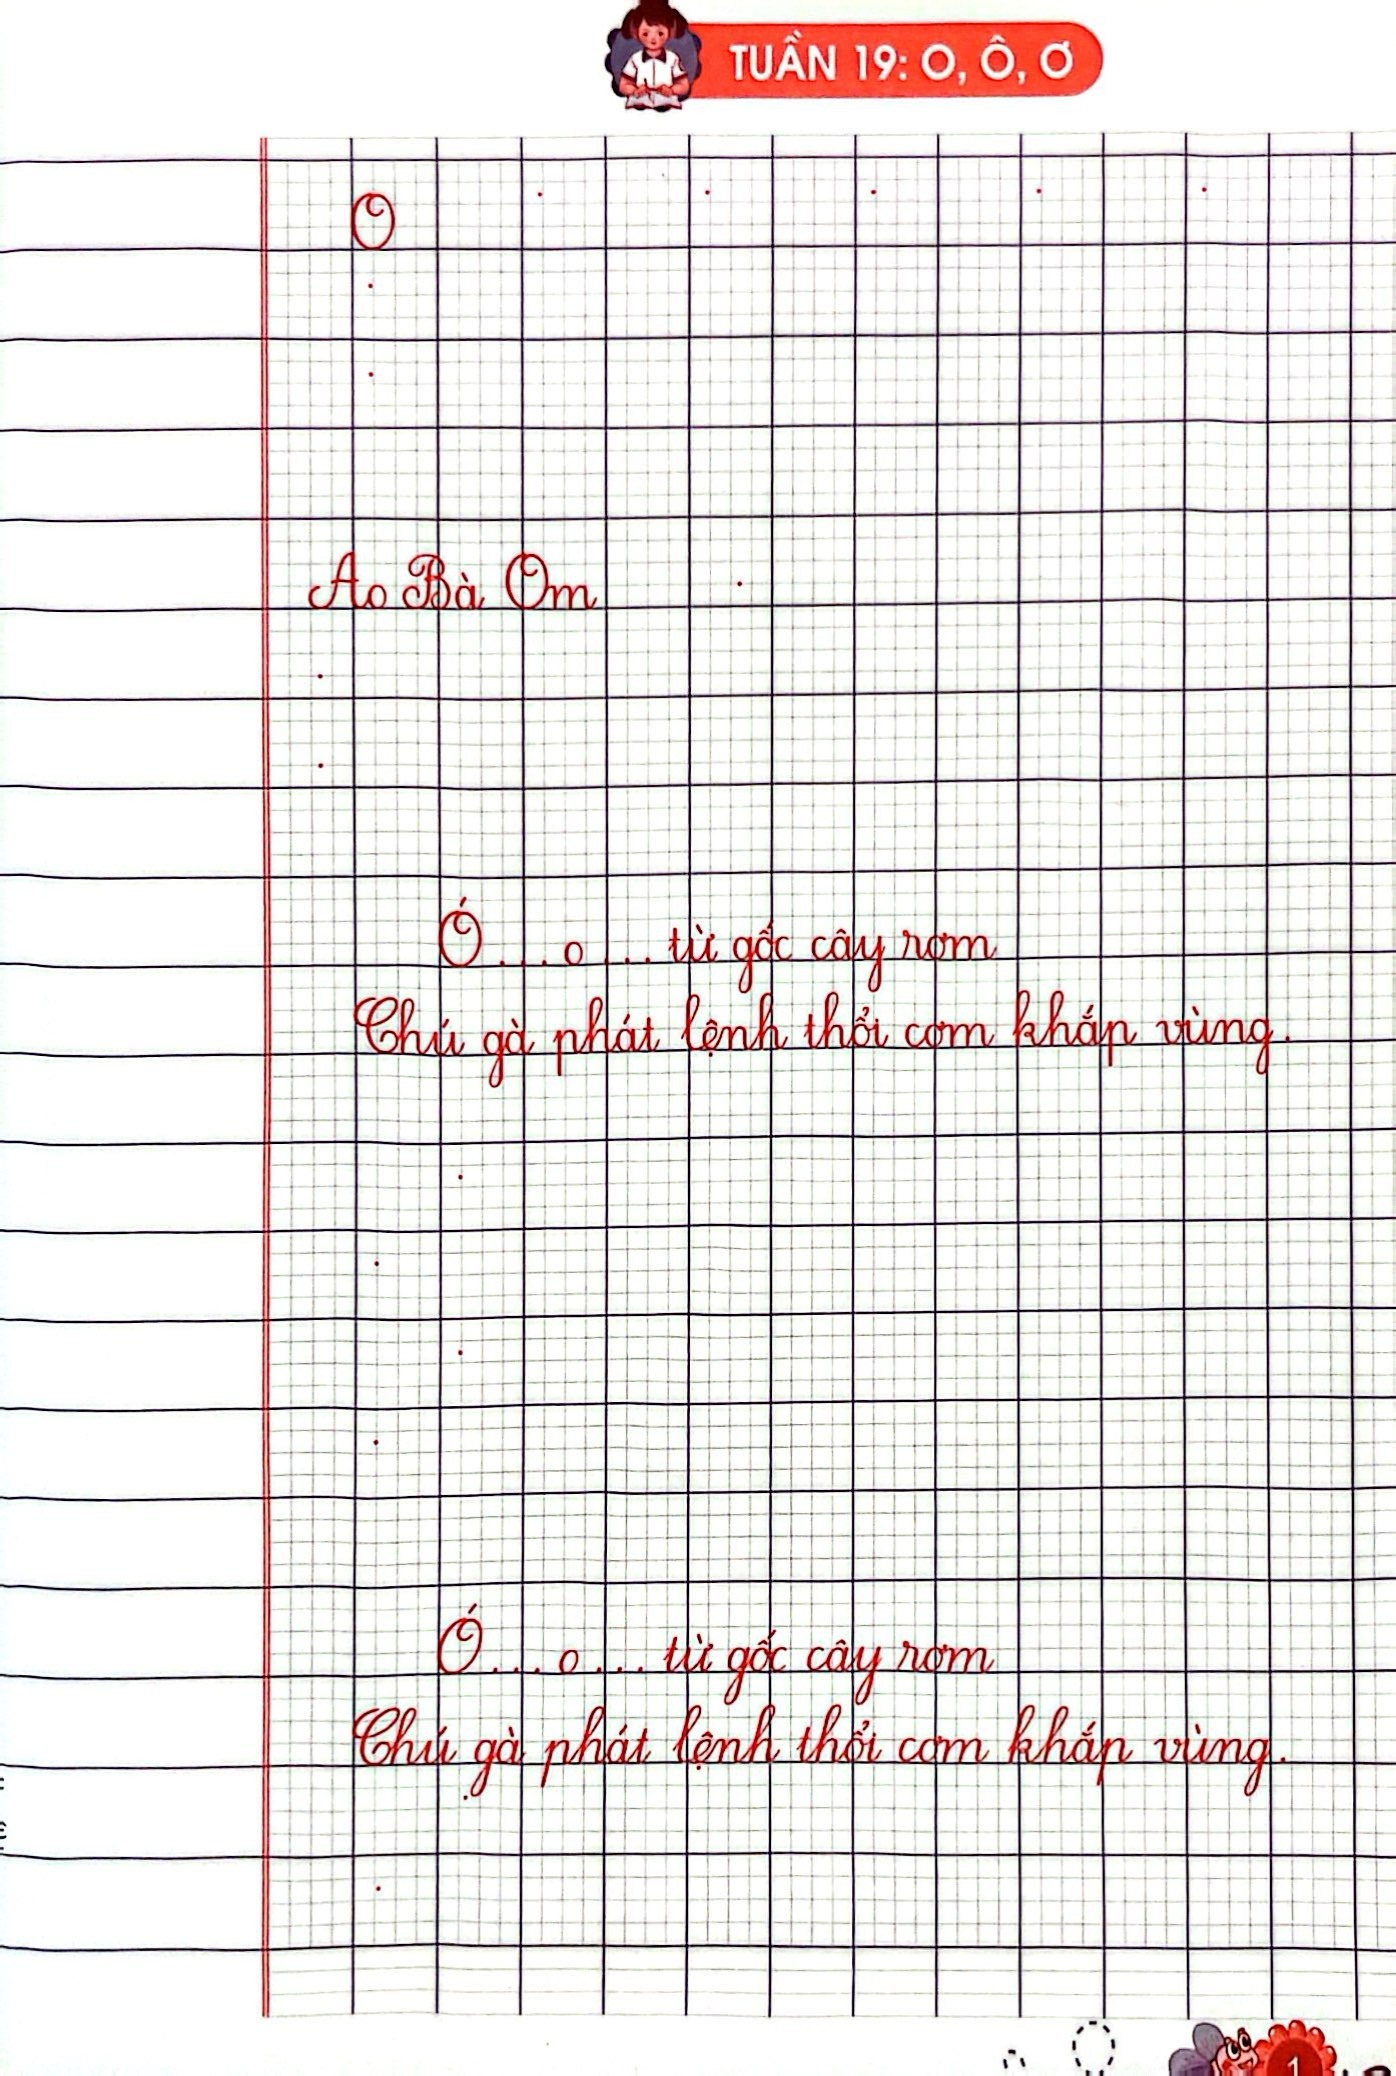 TUẦN 19: O, Ô, Ơ
O
Ao Bà Om
Ó...o... từ gốc cây rơm
Chú gà phát lệnh thổi cơm khắp vùng.
Ó...o... từ gốc cây rơm
Chú gà phát lệnh thổi cơm khắp vùng.
1